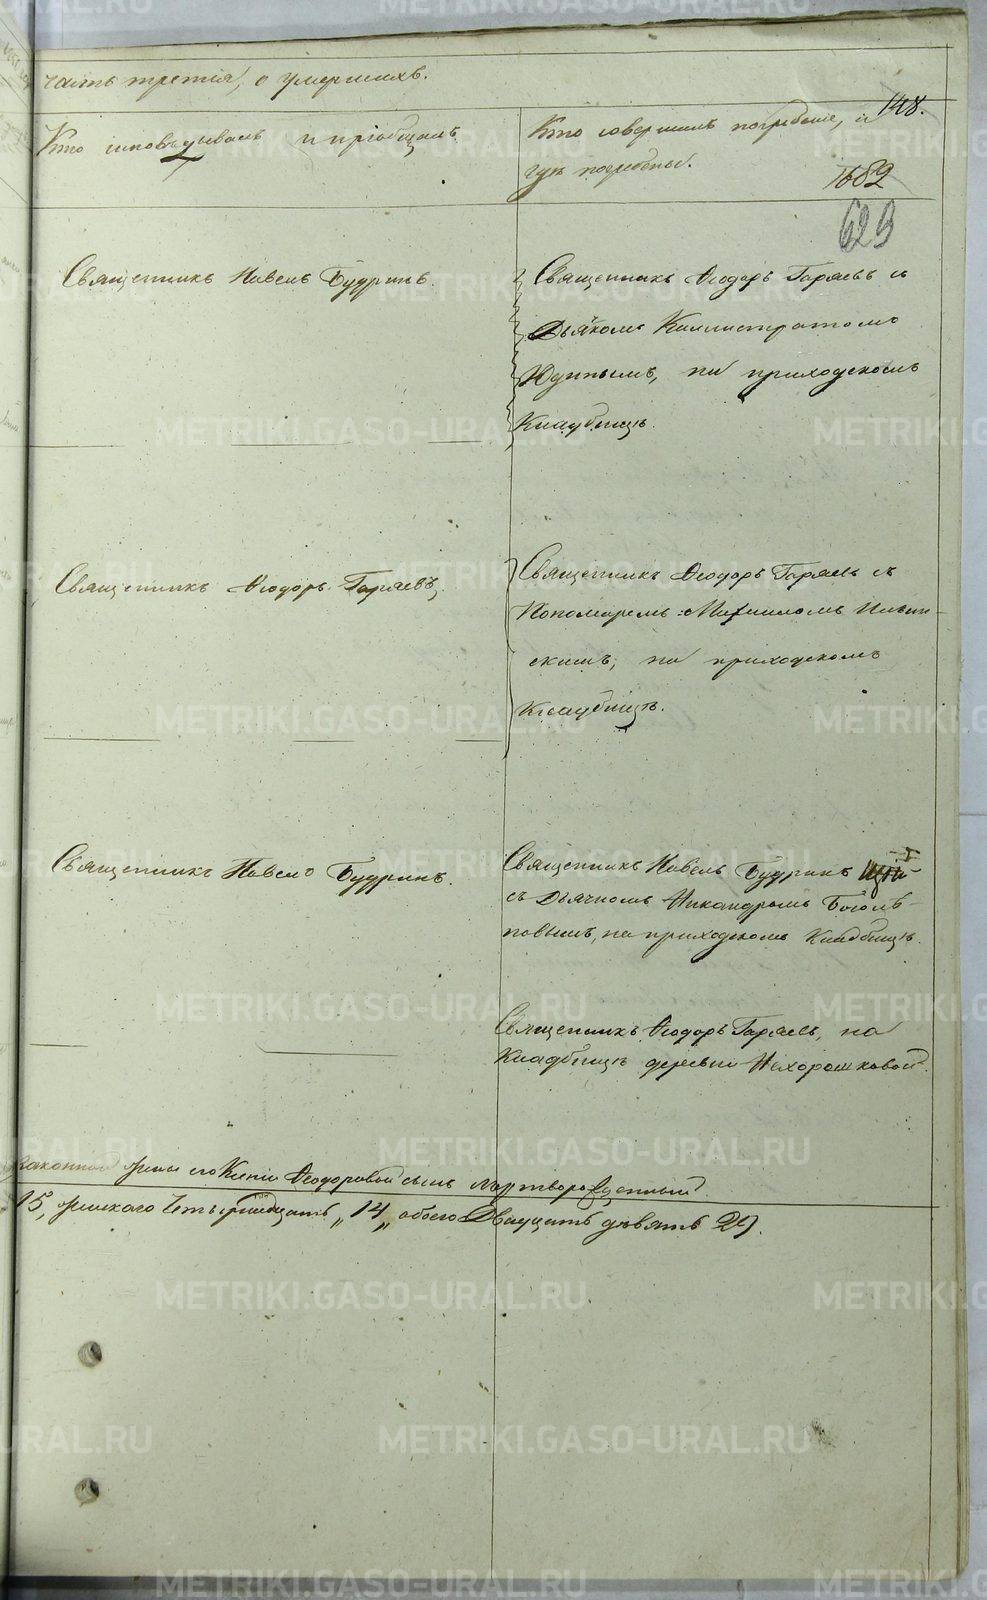 часть третія, о умершихъ.
148.
Кто исповѣдывалъ и пріобщалъ.
Кто совершилъ погребеніе, и
гдѣ погребены.
1682
629
Священникъ Павелъ Будринъ.
Священникъ Ѳеодоръ Гаряевъ съ
Дьякомъ Каллистратомъ
Юдинымъ, на приходскомъ
Кладбищѣ.
Священникъ Ѳеодоръ Гаряевъ,
Священникъ Ѳеодоръ Гаряевъ съ
Пономаремъ Михаиломъ Ильин-
скимъ, на приходскомъ
Кладбищѣ.
Священникъ Павелъ Будринъ.
Священникъ Павелъ Будринъ
съ Дьячкомъ Никандромъ Боголѣ-
повымъ, на приходскомъ Кладбищѣ.
Священникъ Ѳеодоръ Гаряевъ, на
Кладбищѣ деревни Нехорошковой.
законной жены его Ксеніи Ѳеодоровой сынъ мертворожденный.
15, женскаго Четырнадцать „14„ обоего Двадцать девять 29.
METRIKI.GASO-URAL.RU